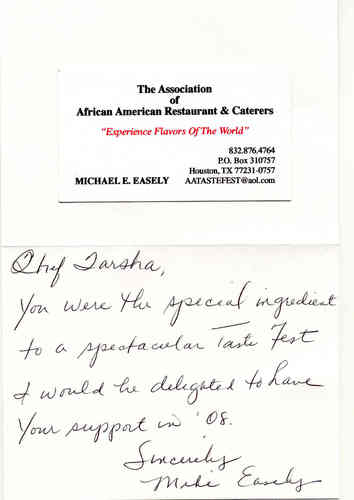 The Association
of
African American Restaurant & Caterers
"Experience Flavors Of The World"
832.876.4764
P.O. Box 310757
Houston, TX 77231-0757
MICHAEL E. EASELY AATASTEFEST@aol.com
Chef Tarsha,
You were the special ingredient
to a spectacular Taste Fest
I would be delegated to have
Your support in '08.
Sincerely
Mike Easely